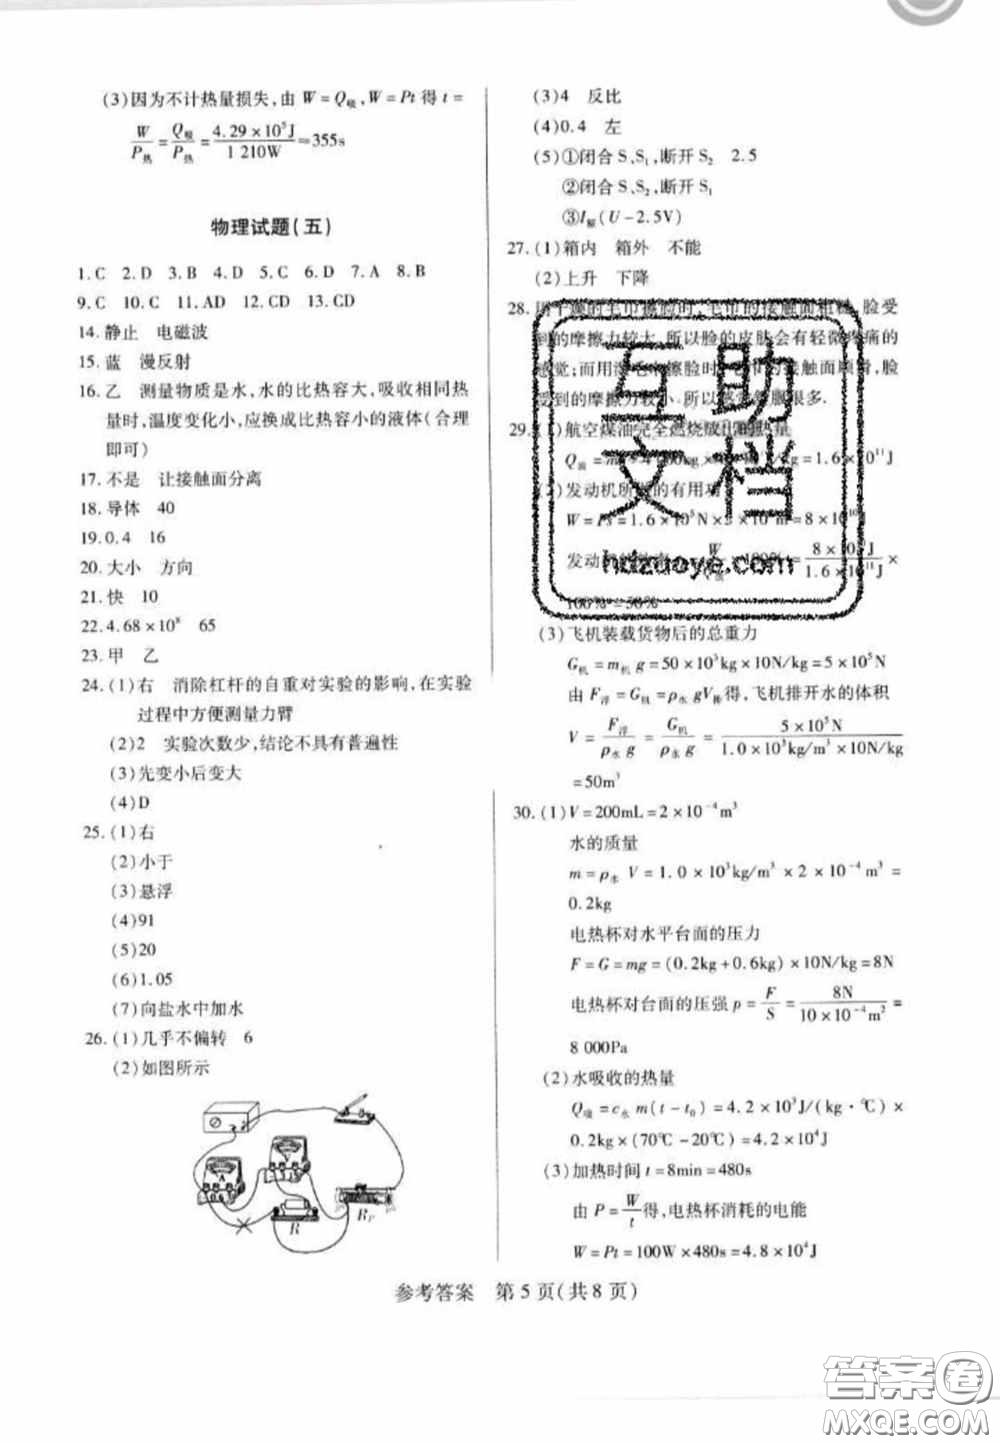 (3)因为不计热量损失,由 W=Q吸,W=Pt 得 t=
W/P热=Q吸/P热=4.29×10⁵J/1 210W≈355s
物理试题(五)
1.C 2.D 3.B 4.D 5.C 6.D 7.A 8.B
9.C 10.C 11.AD 12.CD 13.CD
14.静止 电磁波
15.蓝 漫反射
16.乙 测量物质是水,水的比热容大,吸收相同热
量时,温度变化小,应换成比热容小的液体(合理
即可)
17.不是 让接触面分离
18.导体 40
19.0.4 16
20.大小 方向
21.快 10
22.4.68×10⁸ 65
23.甲 乙
24.(1)右 消除杠杆的自重对实验的影响,在实验
过程中方便测量力臂
(2)2 实验次数少,结论不具有普遍性
(3)先变小后变大
(4)D
25.(1)右
(2)小于
(3)悬浮
(4)91
(5)20
(6)1.05
(7)向盐水中加水
26.(1)几乎不偏转 6
(2)如图所示
A
V
R
R_P
(3)4 反比
(4)0.4 左
(5)①闭合 S、S₁,断开 S₂ 2.5
②闭合 S、S₂,断开 S₁
③I额(U-2.5V)
27.(1)箱内 箱外 不能
(2)上升 下降
28.用干燥的毛巾擦脸时,毛巾的接触面粗糙,脸受
到的摩擦力较大,所以脸的皮肤会有轻微疼痛的
感觉;而用湿毛巾擦脸时,毛巾的接触面顺滑,脸
受到的摩擦力较小,所以感觉舒服很多.
29.(1)航空煤油完全燃烧放出的热量
kg=1.6×10¹¹J
(2)发动机所做的有用功
W=Fs=1.6×10⁵N× m=8×10¹⁰J
发动机 ×100%=8×10¹⁰J/1.6×10¹¹J×
100%=50%
(3)飞机装载货物后的总重力
G机=m机 g=50×10³kg×10N/kg=5×10⁵N
由 F浮=G机=ρ水 gV排得,飞机排开水的体积
V=F浮/ρ水 g=G机/ρ水 g=5×10⁵N/1.0×10³kg/m³×10N/kg
=50m³
30.(1)V=200mL=2×10⁻⁴m³
水的质量
m=ρ水 V=1.0×10³kg/m³×2×10⁻⁴m³=
0.2kg
电热杯对水平台面的压力
F=G=mg=(0.2kg+0.6kg)×10N/kg=8N
电热杯对台面的压强 p=F/S=8N/10×10⁻⁴m²=
8 000Pa
(2)水吸收的热量
Q吸=c水 m(t-t₀)=4.2×10³J/(kg·℃)×
0.2kg×(70℃-20℃)=4.2×10⁴J
(3)加热时间 t=8min=480s
由 P=W/t得,电热杯消耗的电能
W=Pt=100W×480s=4.8×10⁴J
互助
文档
hdzuoye.com
参考答案 第 5 页(共 8 页)
答案圈
MXQE.COM